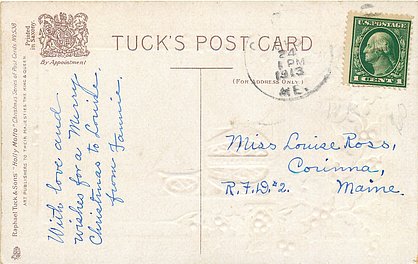 Raphael Tuck & Sons' "Holly Motto" Christmas Series of Post Cards
ART PUBLISHERS TO THEIR MAJESTIES THE KING & QUEEN.
Printed
in Saxony.
By Appointment
TUCK'S POST CARD
(FOR ADDRESS ONLY.)
24
1 PM
1913
ME.
U.S. POSTAGE
1 CENT 1
With love and
wishes for a Merry
Christmas to Louise,
from Fannie.
Miss Louise Ross,
Corinna,
R.F.D. #2. Maine.